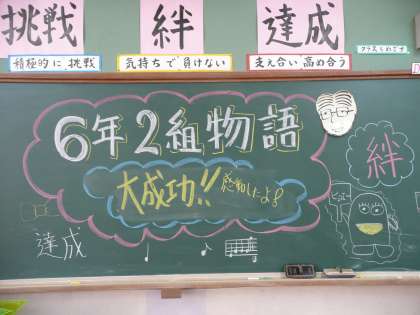 挑戦
絆
達成
積極的に挑戦
気持ちで負けない
支え合い高め合う
6年2組物語
大成功!!
感動したよ!
絆
達成